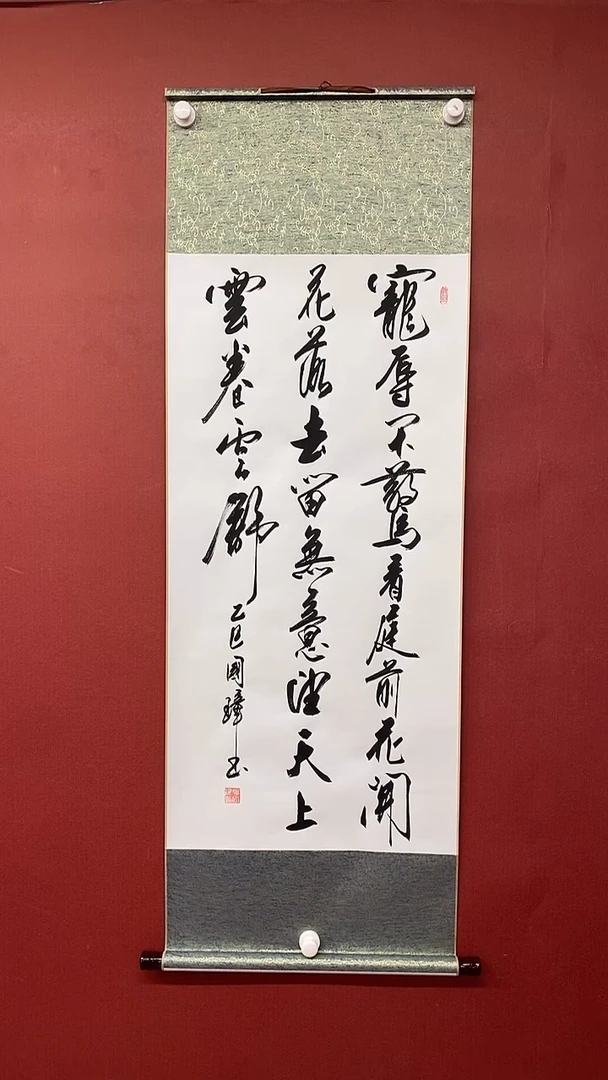 寵辱不驚看庭前花開
花落去留無意望天上
雲卷雲舒
乙巳國璋書